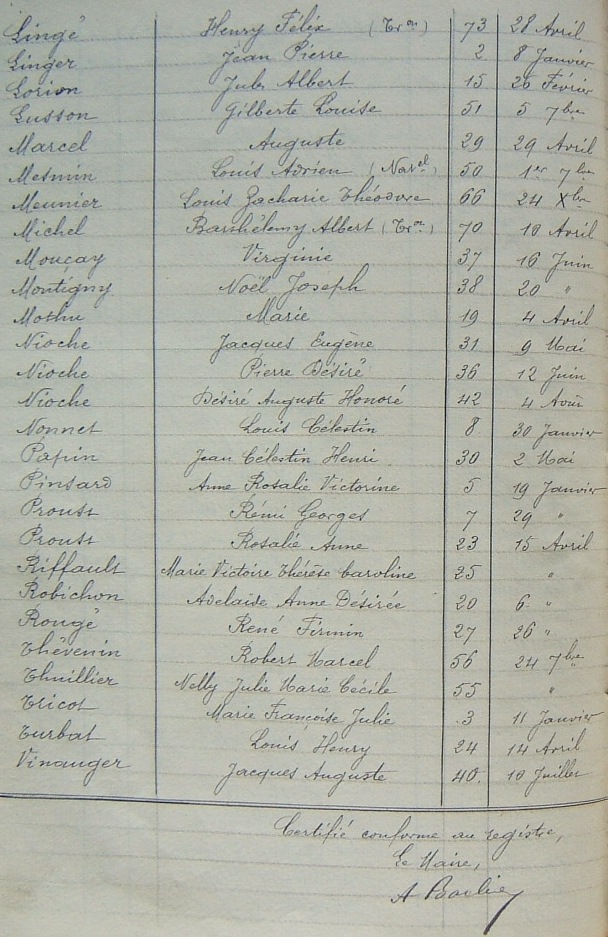 Lingé Henry Félix (Tr.on) 73 28 Avril
Linger Jean Pierre 2 8 Janvier
Lorion Jules Albert 15 26 Février
Lusson Gilberte Louise 51 5 7bre
Marcel Auguste 29 29 Avril
Mesmin Louis Adrien 50 1er 7bre
Meunier Louis Zacharie Théodore 66 24 Xbre
Michel Barthélemy Albert (Tr.on) 70 18 Avril
Mouçay Virginie 37 16 Juin
Montigny Noël Joseph 38 20 "
Mothu Marie 19 4 Avril
Nioche Jacques Eugène 31 9 Mai
Nioche Pierre Désiré 36 12 Juin
Nioche Désiré Auguste Honoré 42 4 Août
Nonnet Louis Célestin 8 30 Janvier
Papin Jean Célestin Henri 30 2 Mai
Pinsard Anne Rosalie Victorine 5 19 Janvier
Proust Rémi Georges 7 29 "
Proust Rosalie Anne 23 15 Avril
Riffault Marie Victoire Thérèse Caroline 25 "
Robichon Adelaïde Anne Désirée 20 6 "
Rougé René Firmin 27 26 "
Thévenin Robert Marcel 56 24 7bre
Thuillier Nelly Julie Marie Cécile 55 "
Tricot Marie Françoise Julie 3 11 Janvier
Turbat Louis Henry 24 14 Avril
Vinauger Jacques Auguste 40. 10 Juillet
Certifié conforme au registre,
Le Maire,
A